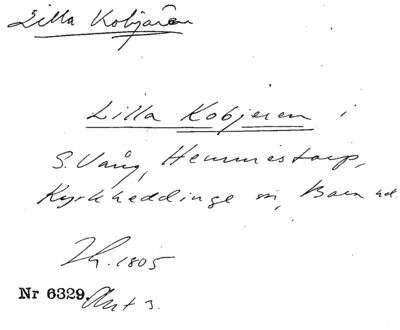 Lilla Kobjären
Lilla Kobjeren i
S. Vång, Hemmestorp,
Kyrkheddinge sn, Bara hd.
1805
Nr 6329. Akt 3.